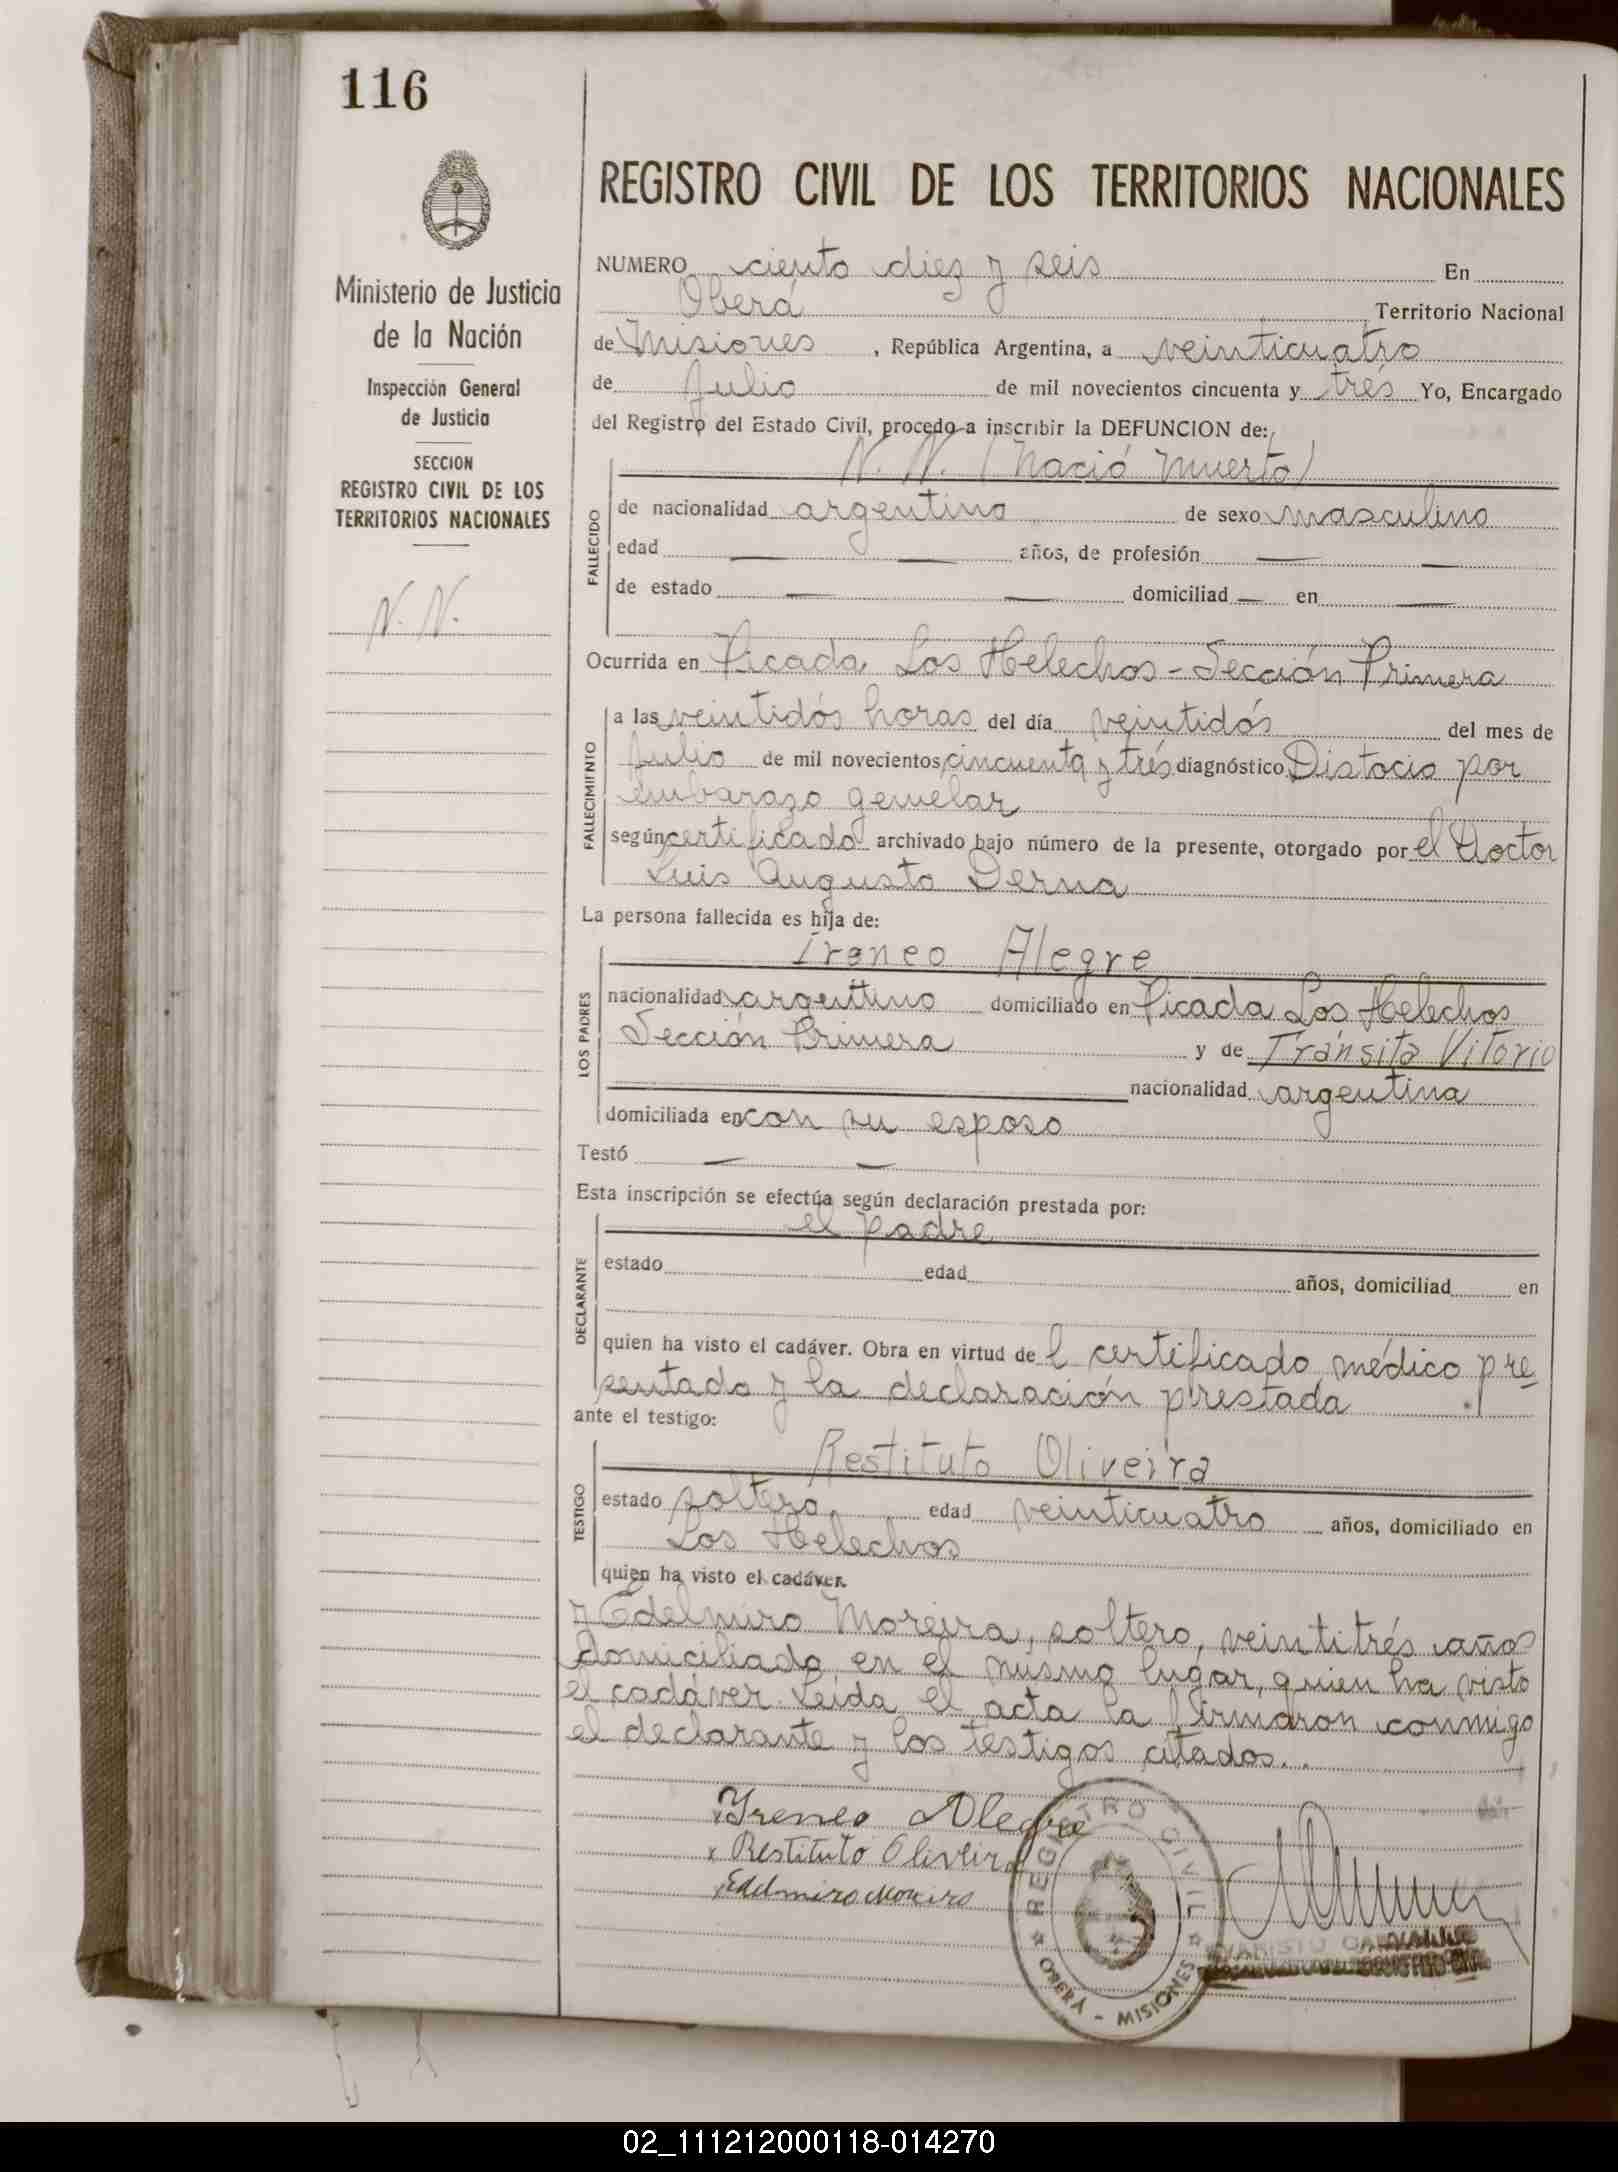 116
Ministerio de Justicia
de la Nación
Inspección General
de Justicia
SECCION
REGISTRO CIVIL DE LOS
TERRITORIOS NACIONALES
N. N.
REGISTRO CIVIL DE LOS TERRITORIOS NACIONALES
NUMERO ciento diez y seis En
Oberá Territorio Nacional
de Misiones, República Argentina, a veinticuatro
de Julio de mil novecientos cincuenta y trés Yo, Encargado
del Registro del Estado Civil, procedo a inscribir la DEFUNCION de:
N. N. (Nació Muerto)
FALLECIDO
de nacionalidad argentino de sexo masculino
edad — — años, de profesión — —
de estado — — domiciliad — en —
Ocurrida en Picada Los Helechos - Sección Primera
FALLECIMIENTO
a las veintidós horas del día veintidós del mes de
Julio de mil novecientos cincuenta y trés diagnóstico Distocia por
embarazo gemelar
según certificado archivado bajo número de la presente, otorgado por el Doctor
Luis Augusto Derna
La persona fallecida es hija de:
LOS PADRES
Ireneo Alegre
nacionalidad argentino domiciliado en Picada Los Helechos
Sección Primera y de Tránsita Vitorio
nacionalidad argentina
domiciliada en con su esposo
Testó — —
Esta inscripción se efectúa según declaración prestada por:
DECLARANTE
el padre
estado edad años, domiciliad en
quien ha visto el cadáver. Obra en virtud de l certificado médico pre
sentado y la declaración prestada.
ante el testigo:
TESTIGO
Restituto Oliveira
estado soltero edad veinticuatro años, domiciliado en
Los Helechos
quien ha visto el cadáver.
y Edelmiro Moreira, soltero, veintitrés años
domiciliado en el mismo lugar, quien ha visto
el cadáver. Leída el acta la firmaron conmigo
el declarante y los testigos citados..
Yreneo Alegre
x Restituto Oliveira
Edelmiro Moreira
REGISTRO CIVIL
OBERÁ - MISIONES
EVARISTO
02_111212000118-014270